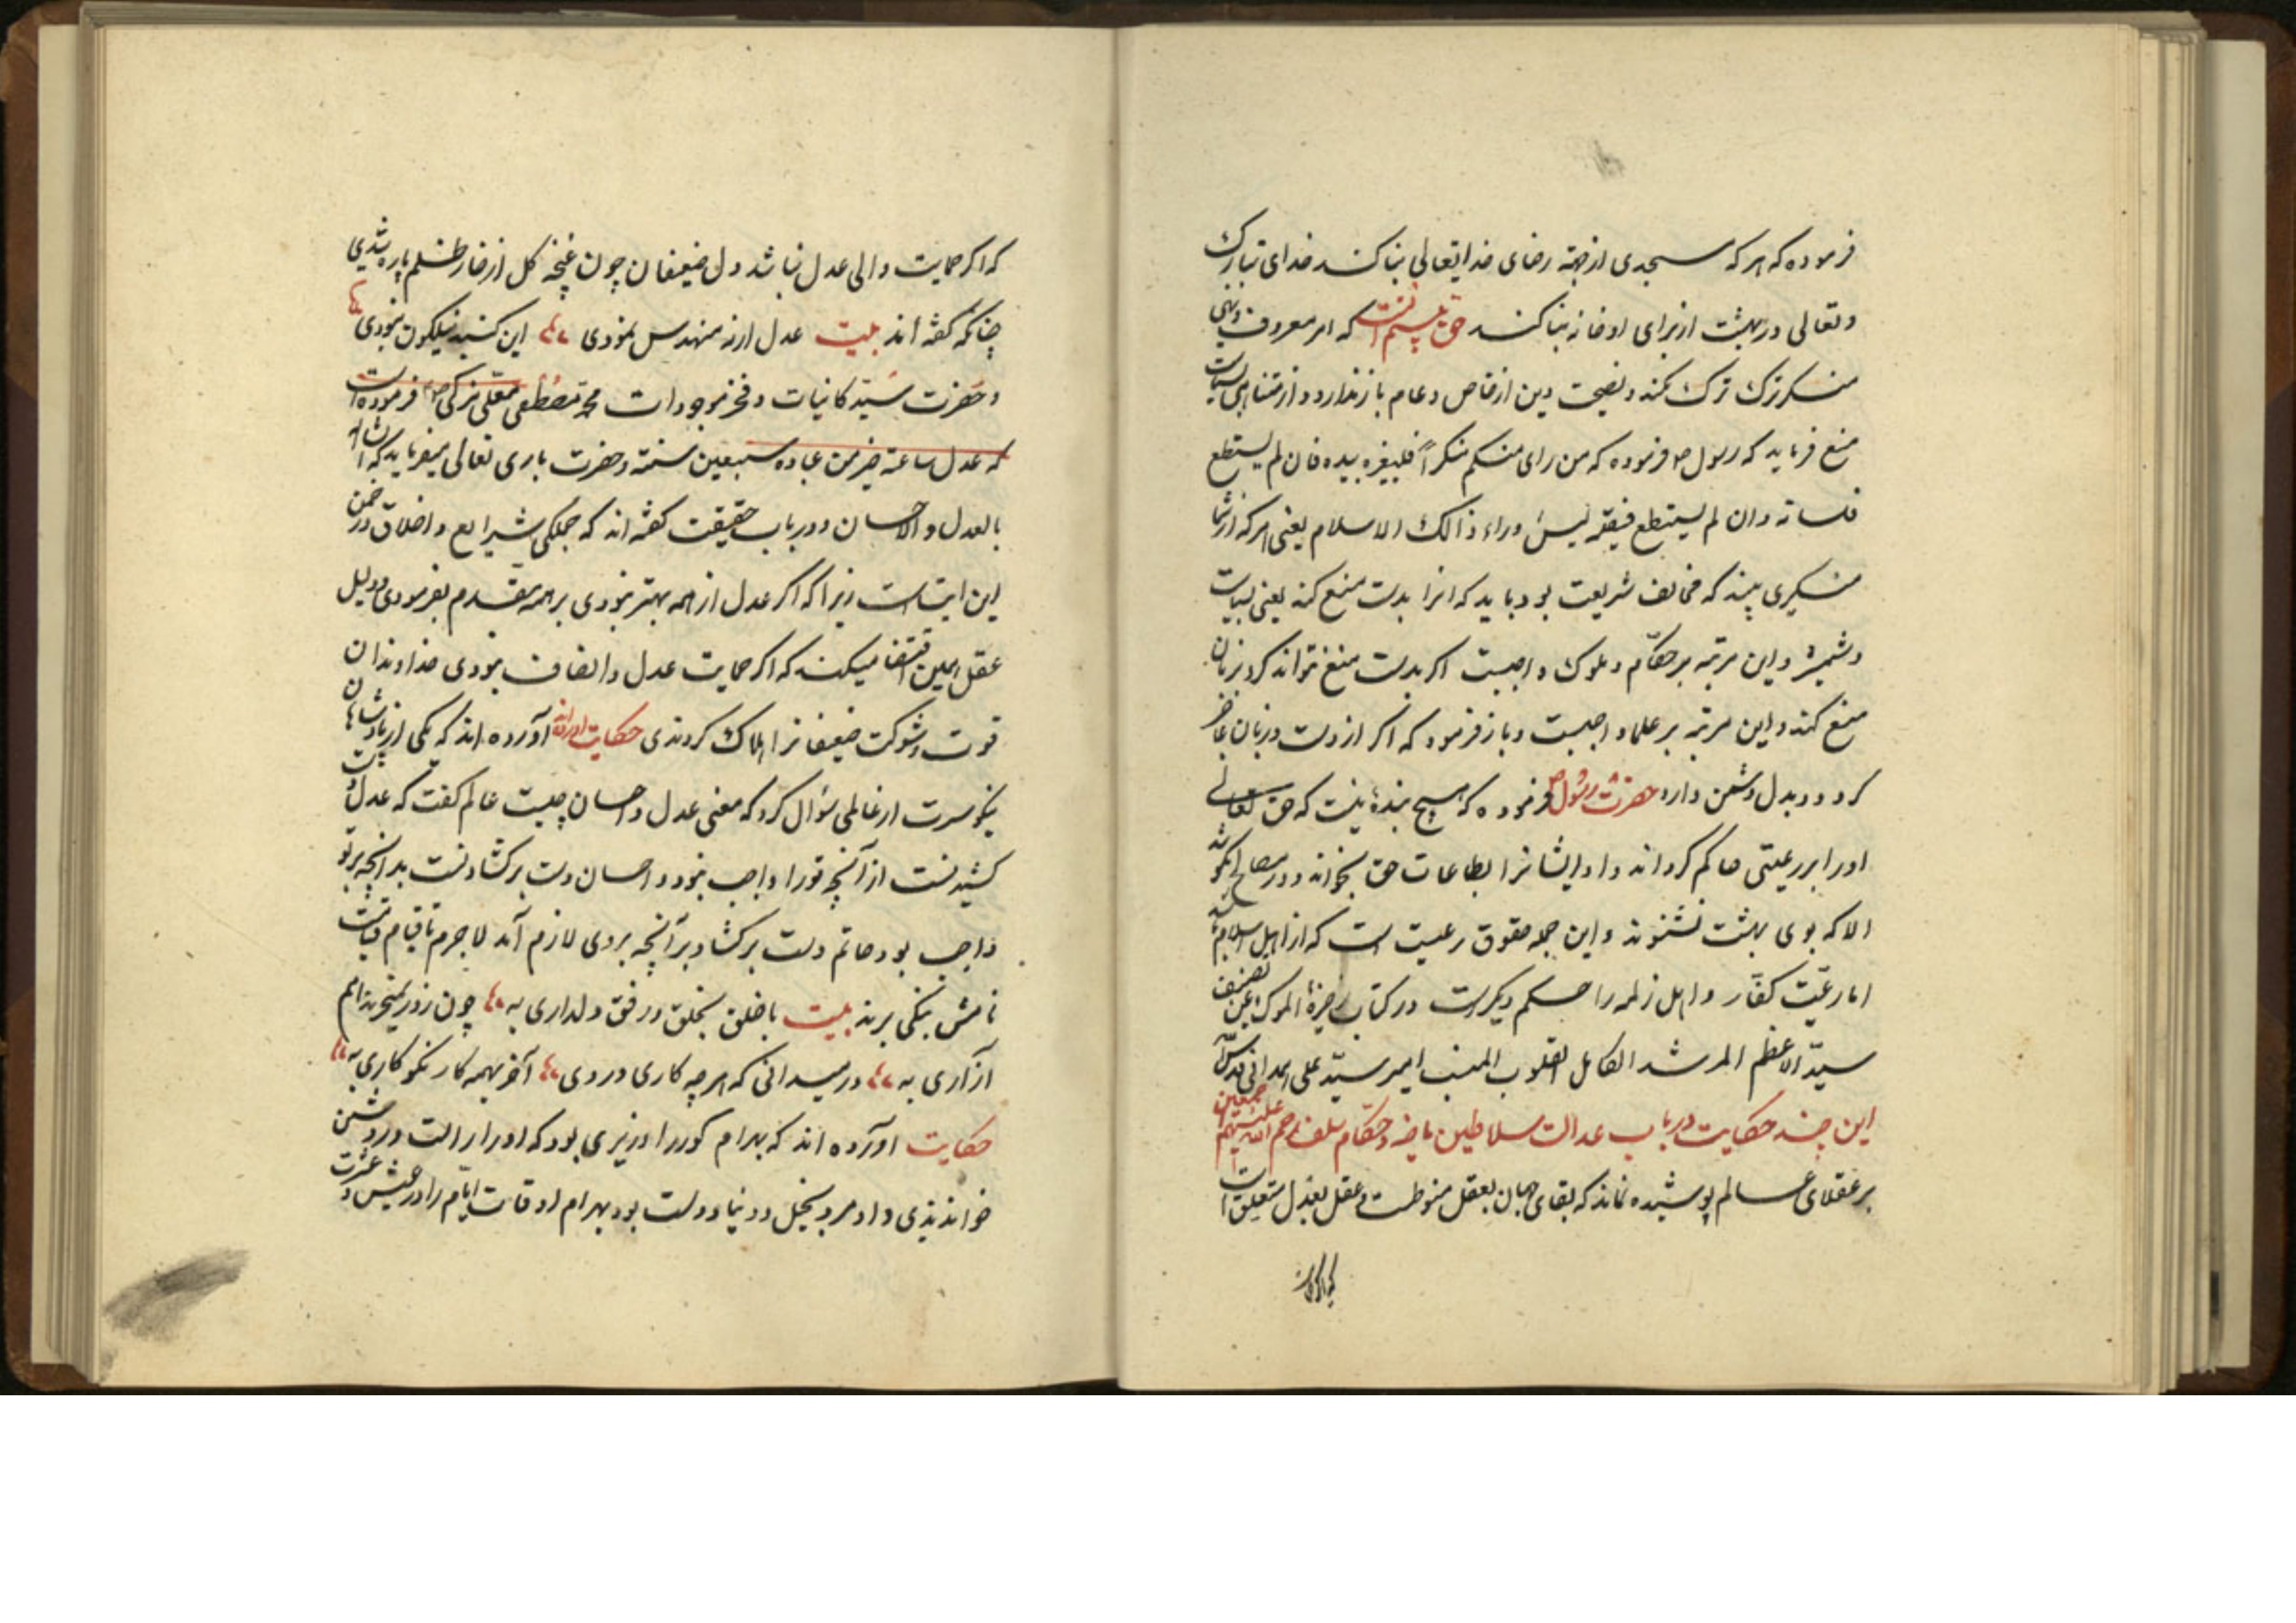 فرموده که هر که مسجدی از جهة رضای خدایتعالی بنا کند خدای تبارک
وتعالی در بهشت از برای او خانه بنا کند حق بیستم انست که امر معروف ونهی
منکر ترک نکند ونصیحت دین از خاص وعام باز ندارد واز مناهی بسیاست
منع فرماید که رسول ص فرموده که من رای منکم منکراً فلیغیره بیده فان لم یستطع
فلسانه وان لم یستطع فبقلبه لیس وراء ذالک الاسلام یعنی هر که از شما
منکری بیند که مخالف شریعت بود باید که انرا بدست منع کند یعنی بسیاست
وشمشیر واین مرتبه بر حکّام وملوک واجبست اکر بدست منع نتواند کرد بزبان
منع کند واین مرتبه بر علما واجبست وباز فرمود که اکر از دست وزبان عاجز
کردد بدل دشمن دارد حضرت رسول ص فرموده که هیچ بندۀ نیست که حق تعالی
اورا بر رعیتی حاکم کرداند واو ایشانرا بطاعات حق نخواند ودر مصالح نکوشد
الا که بوی بهشت نشنوند واین جمله حقوق رعیت است که از اهل اسلام باشند
اما رعیّت کفّار واهل ذلمه را حکم دیکرست در کتاب ذخیرة الملوک تصنیف
سیّد الاعظم المرشد الکامل القلوب امیر سیّد علی همدانی قدس
این چند حکایت در باب عدالت سلاطین ماضیه وحکّام سلف رحم الله علیهم اجمعین
بر عقلای عالم پوشیده نماند که بقای جهان بعقل منوطست وعقل بعدل متعلق است
که اکر حمایت والی عدل نباشد دل ضعیفان چون غنچه کل از خار ظلم پاره شدی
چنانکه کفته اند بیت عدل ار نه مهندس نمودی این کنبد نیلکون نبودی
وحضرت سیّد کاینات وفخر موجودات محمد مصطفی معلّی مزکی ص فرموده است
که عدل ساعة خیر من عباده سبعین سنة وحضرت باری تعالی میفرماید که ان الله
بالعدل والاحسان ودر باب حقیقت کفته اند که جملکی شرایع واخلاق در ضمن
این ایتست زیرا که اکر عدل از همه بهتر نبودی بر همه مقدم نفرمودی ودلیل
عقل همین اقتضا میکند که اکر حمایت عدل وانصاف نبودی خداوندان
قوت وشوکت ضعیفانرا هلاک کردندی حکایت آورده اند که یکی از پادشاهان
نیکو سیرت از عالمی سؤال کرد که معنی عدل واحسان چیست عالم کفت که عدل دست
کشیدنست از آنچه تورا واجب نبود واحسان دست برکشادنست بدانچه بر تو
واجب بود حاتم دست برکشاد بر آنچه بروی لازم آمد لاجرم تا قیام قیامت
نامش بنیکی برند بیت با خلق بخلق ورفق ودلداری به چون زور نمیخرند
آزاری به ودر میدانی که هر چه کاری دروی آخر بهمه کار نکو کاری به
حکایت اورده اند که بهرام کور را وزیری بود که اورا راست وروشن
خواندندی واو مرد بخیل ودنیا دوست بود بهرام اوقات ایّام را در عیش وعشرت